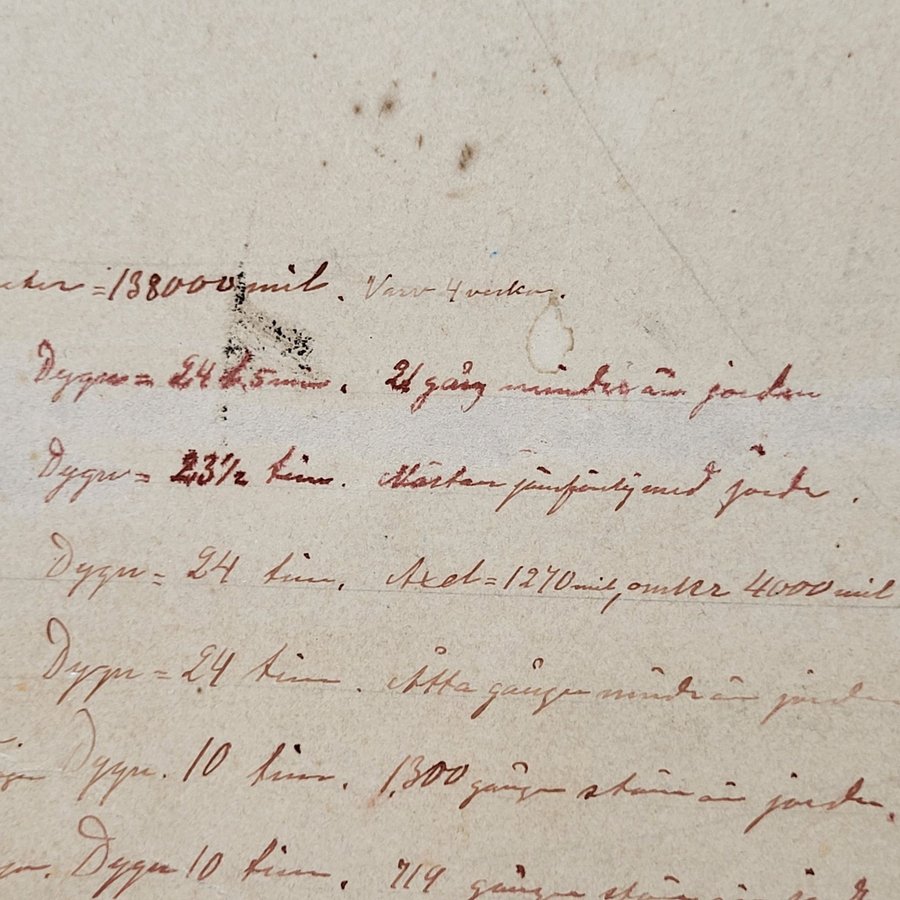 = 138000 mil. Varv 4 veckor.
Dygn = 24 t. 5 min. 21 gång mindre än jorden
Dygn = 23 1/2 tim. Nästan jämförlig med jorden.
Dygn = 24 tim. Axel = 1270 mil, omkr 4000 mil
Dygn = 24 tim. Åtta gånger mindre än jorden
Dygn. 10 tim. 1,300 gånger större än jorden.
Dygn 10 tim. 719 gånger större än